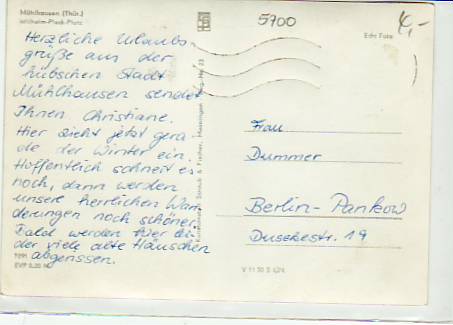 Mühlhausen (Thür.)
Wilhelm-Pieck-Platz
Herzliche Urlaubs-
grüße aus der
hübschen Stadt
Mühlhausen sendet
Ihnen Christiane.
Hier zieht jetzt gera-
de der Winter ein.
Hoffentlich schneit es
noch, dann werden
unsere herrlichen Wan-
derungen noch schöner.
Bald werden hier lei-
der viele alte Häuschen
abgerissen.
EVP 0,20
5700
4,-
Echt Foto
Frau
Dummer
Berlin-Pankow
Dusekestr. 19
V 11 50 S 624